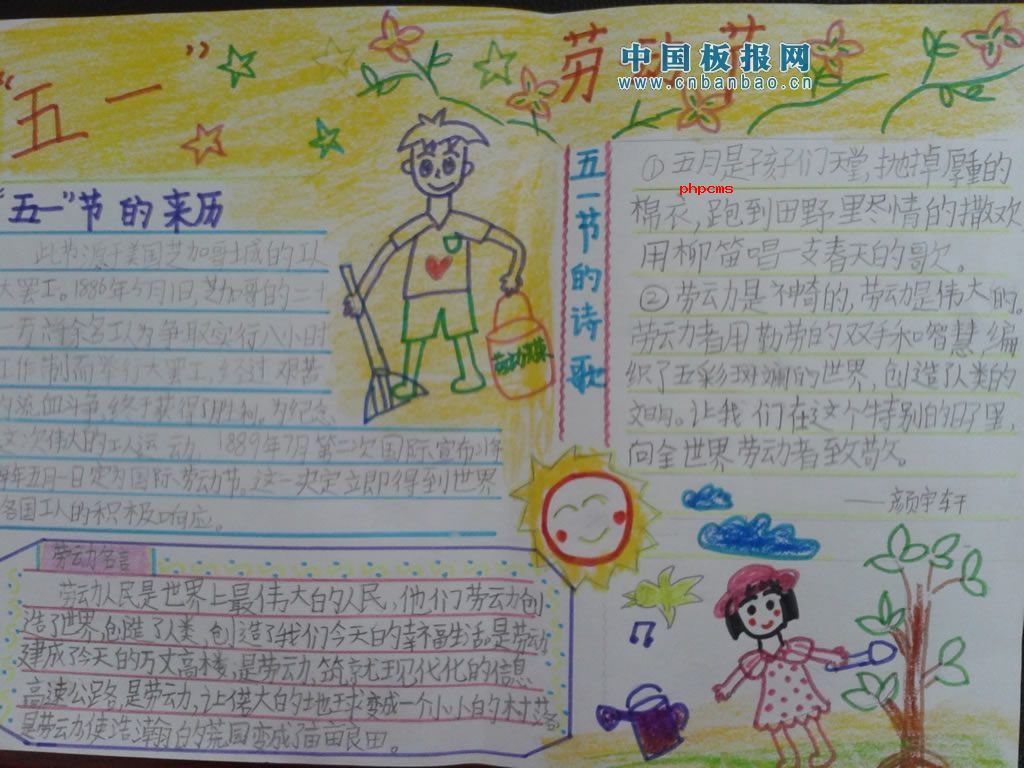 “五一”
劳动节
中国板报网
www.cnbanbao.cn
“五一”节的来历
此节源于美国芝加哥城的工人
大罢工。1886年5月1日,芝加哥的二十
一万六千余名工人为争取实行八小时
工作制而举行大罢工,经过艰苦
的流血斗争,终于获得了胜利。为纪念
这次伟大的工人运动,1889年7月第二次国际宣布将
每年五月一日定为国际劳动节。这一决定立即得到世界
各国工人的积极响应。
劳动光荣
五一节的诗歌
①五月是孩子们天堂,抛掉厚重的
phpcms
棉衣,跑到田野里尽情的撒欢
用柳笛唱一支春天的歌。
②劳动是神奇的,劳动是伟大的。
劳动者用勤劳的双手和智慧,编
织了五彩斑斓的世界,创造了人类的
文明。让我们在这个特别的日子里,
向全世界劳动者致敬。
——颜宇轩
劳动名言
劳动人民是世界上最伟大的人民,他们劳动创
造了世界,创造了人类,创造了我们今天的幸福生活。是劳动
建成了今天的万丈高楼;是劳动,筑就现代化的信息
高速公路;是劳动,让偌大的地球变成一个小小的村落;
是劳动使浩瀚的荒园变成了亩亩良田。